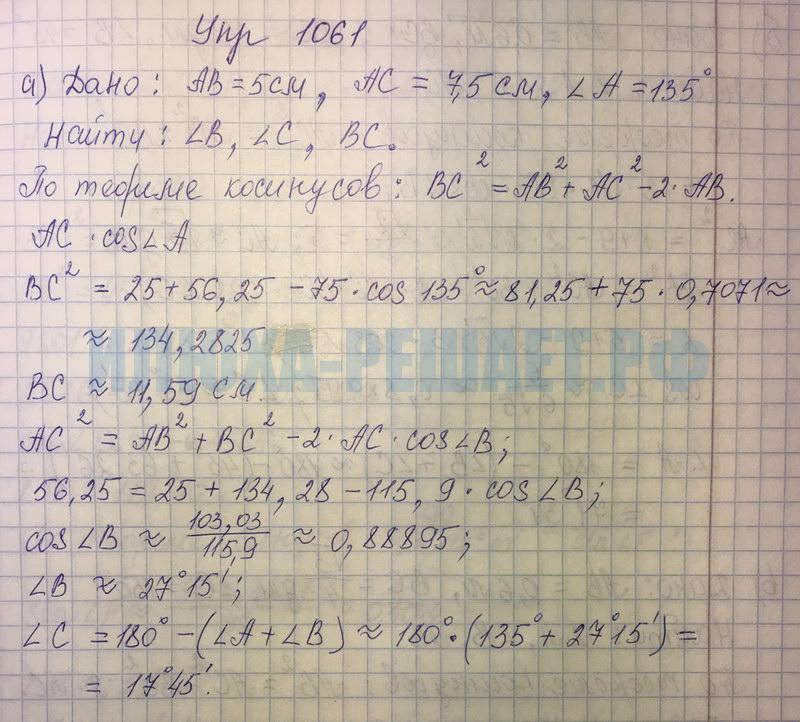 Упр 1061
а) Дано: AB = 5 см, AC = 7,5 см, ∠A = 135°
Найти: ∠B, ∠C, BC.
По теореме косинусов: BC² = AB² + AC² - 2 · AB ·
AC · cos∠A
BC² = 25 + 56,25 - 75 · cos 135° ≈ 81,25 + 75 · 0,7071 ≈
≈ 134,2825
ИЛЮХА-РЕШАЕТ.РФ
BC ≈ 11,59 см.
AC² = AB² + BC² - 2 · AC · cos∠B;
56,25 = 25 + 134,28 - 115,9 · cos∠B;
cos∠B ≈ 103,03/115,9 ≈ 0,88895;
∠B ≈ 27°15';
∠C = 180° - (∠A + ∠B) ≈ 180° · (135° + 27°15') =
= 17°45'.